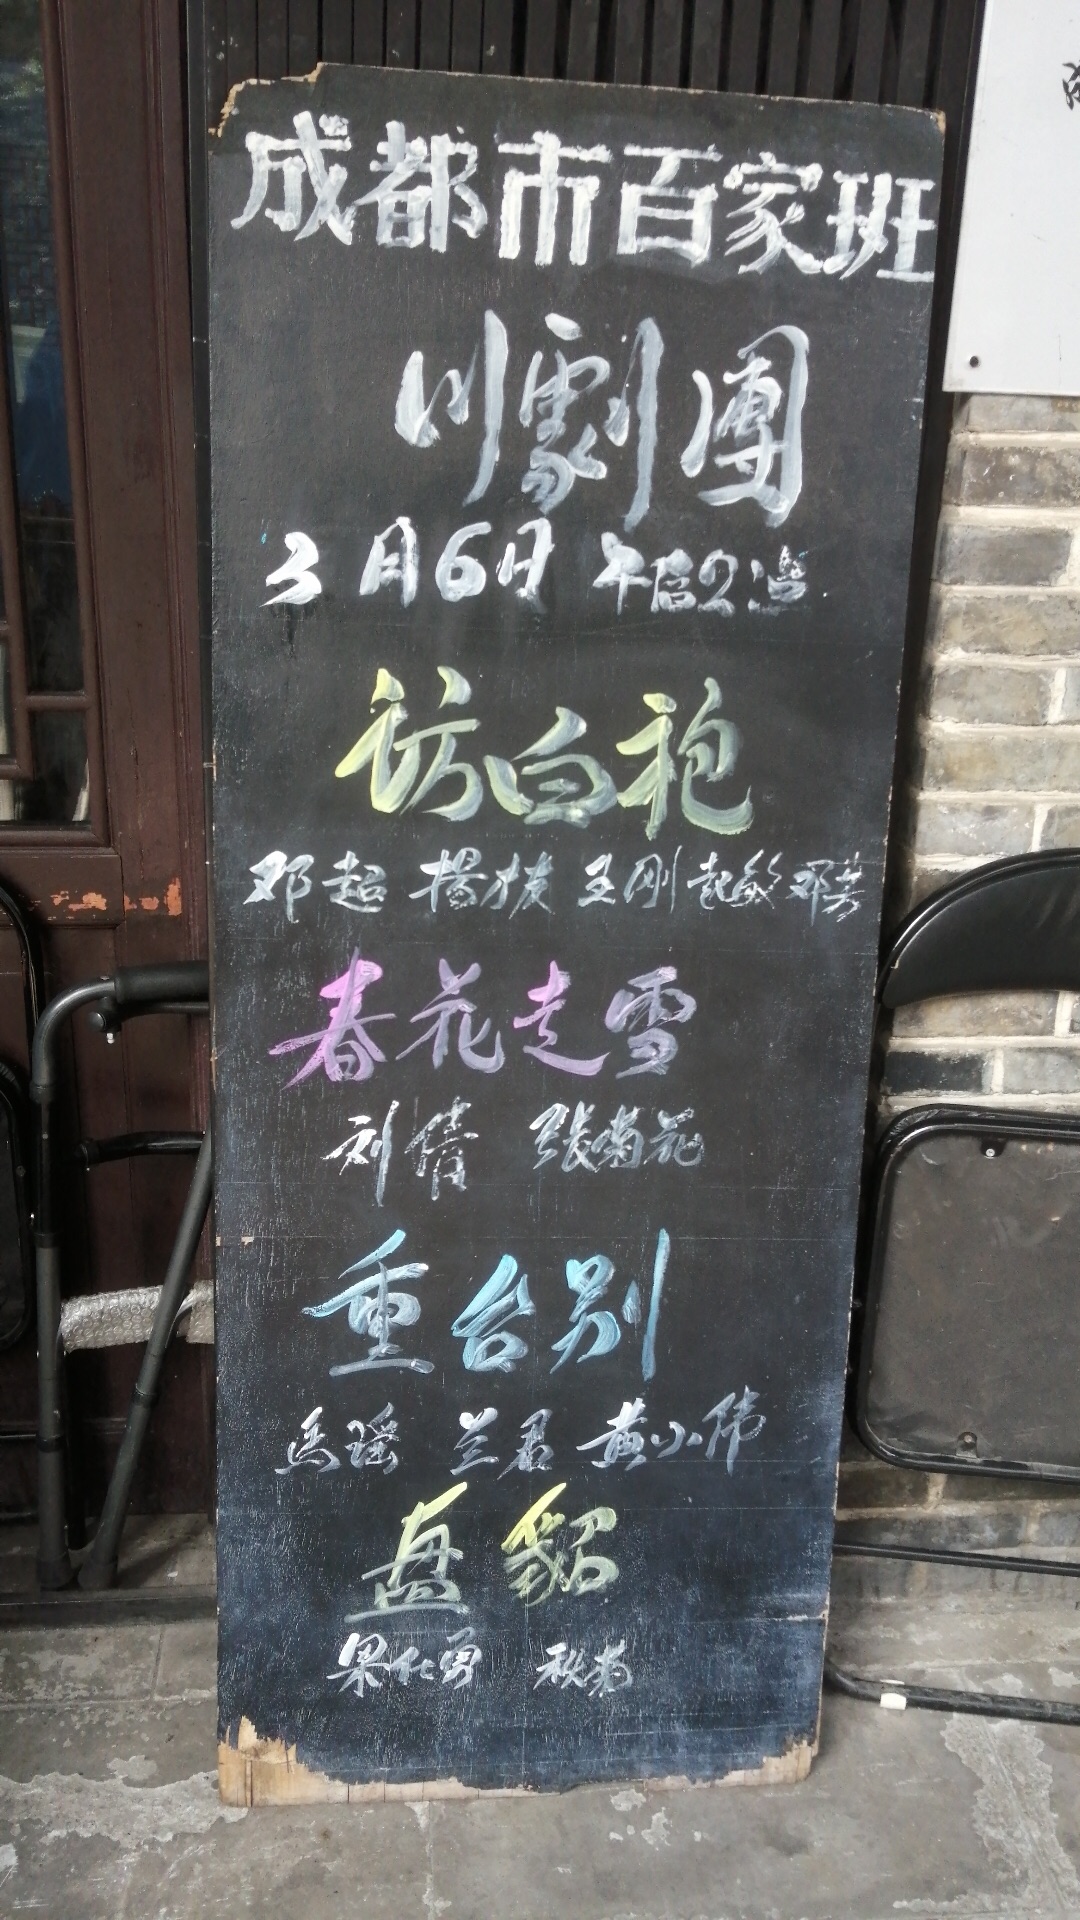 成都市百家班
川劇團
3月6日 午后2点
访白袍
邓超 楊友 王刚 赵敏 邓芳
春花走雪
刘倩 張菊花
重台别
马瑶 兰君 黄小伟
盘貂
梁仁勇 秋菊